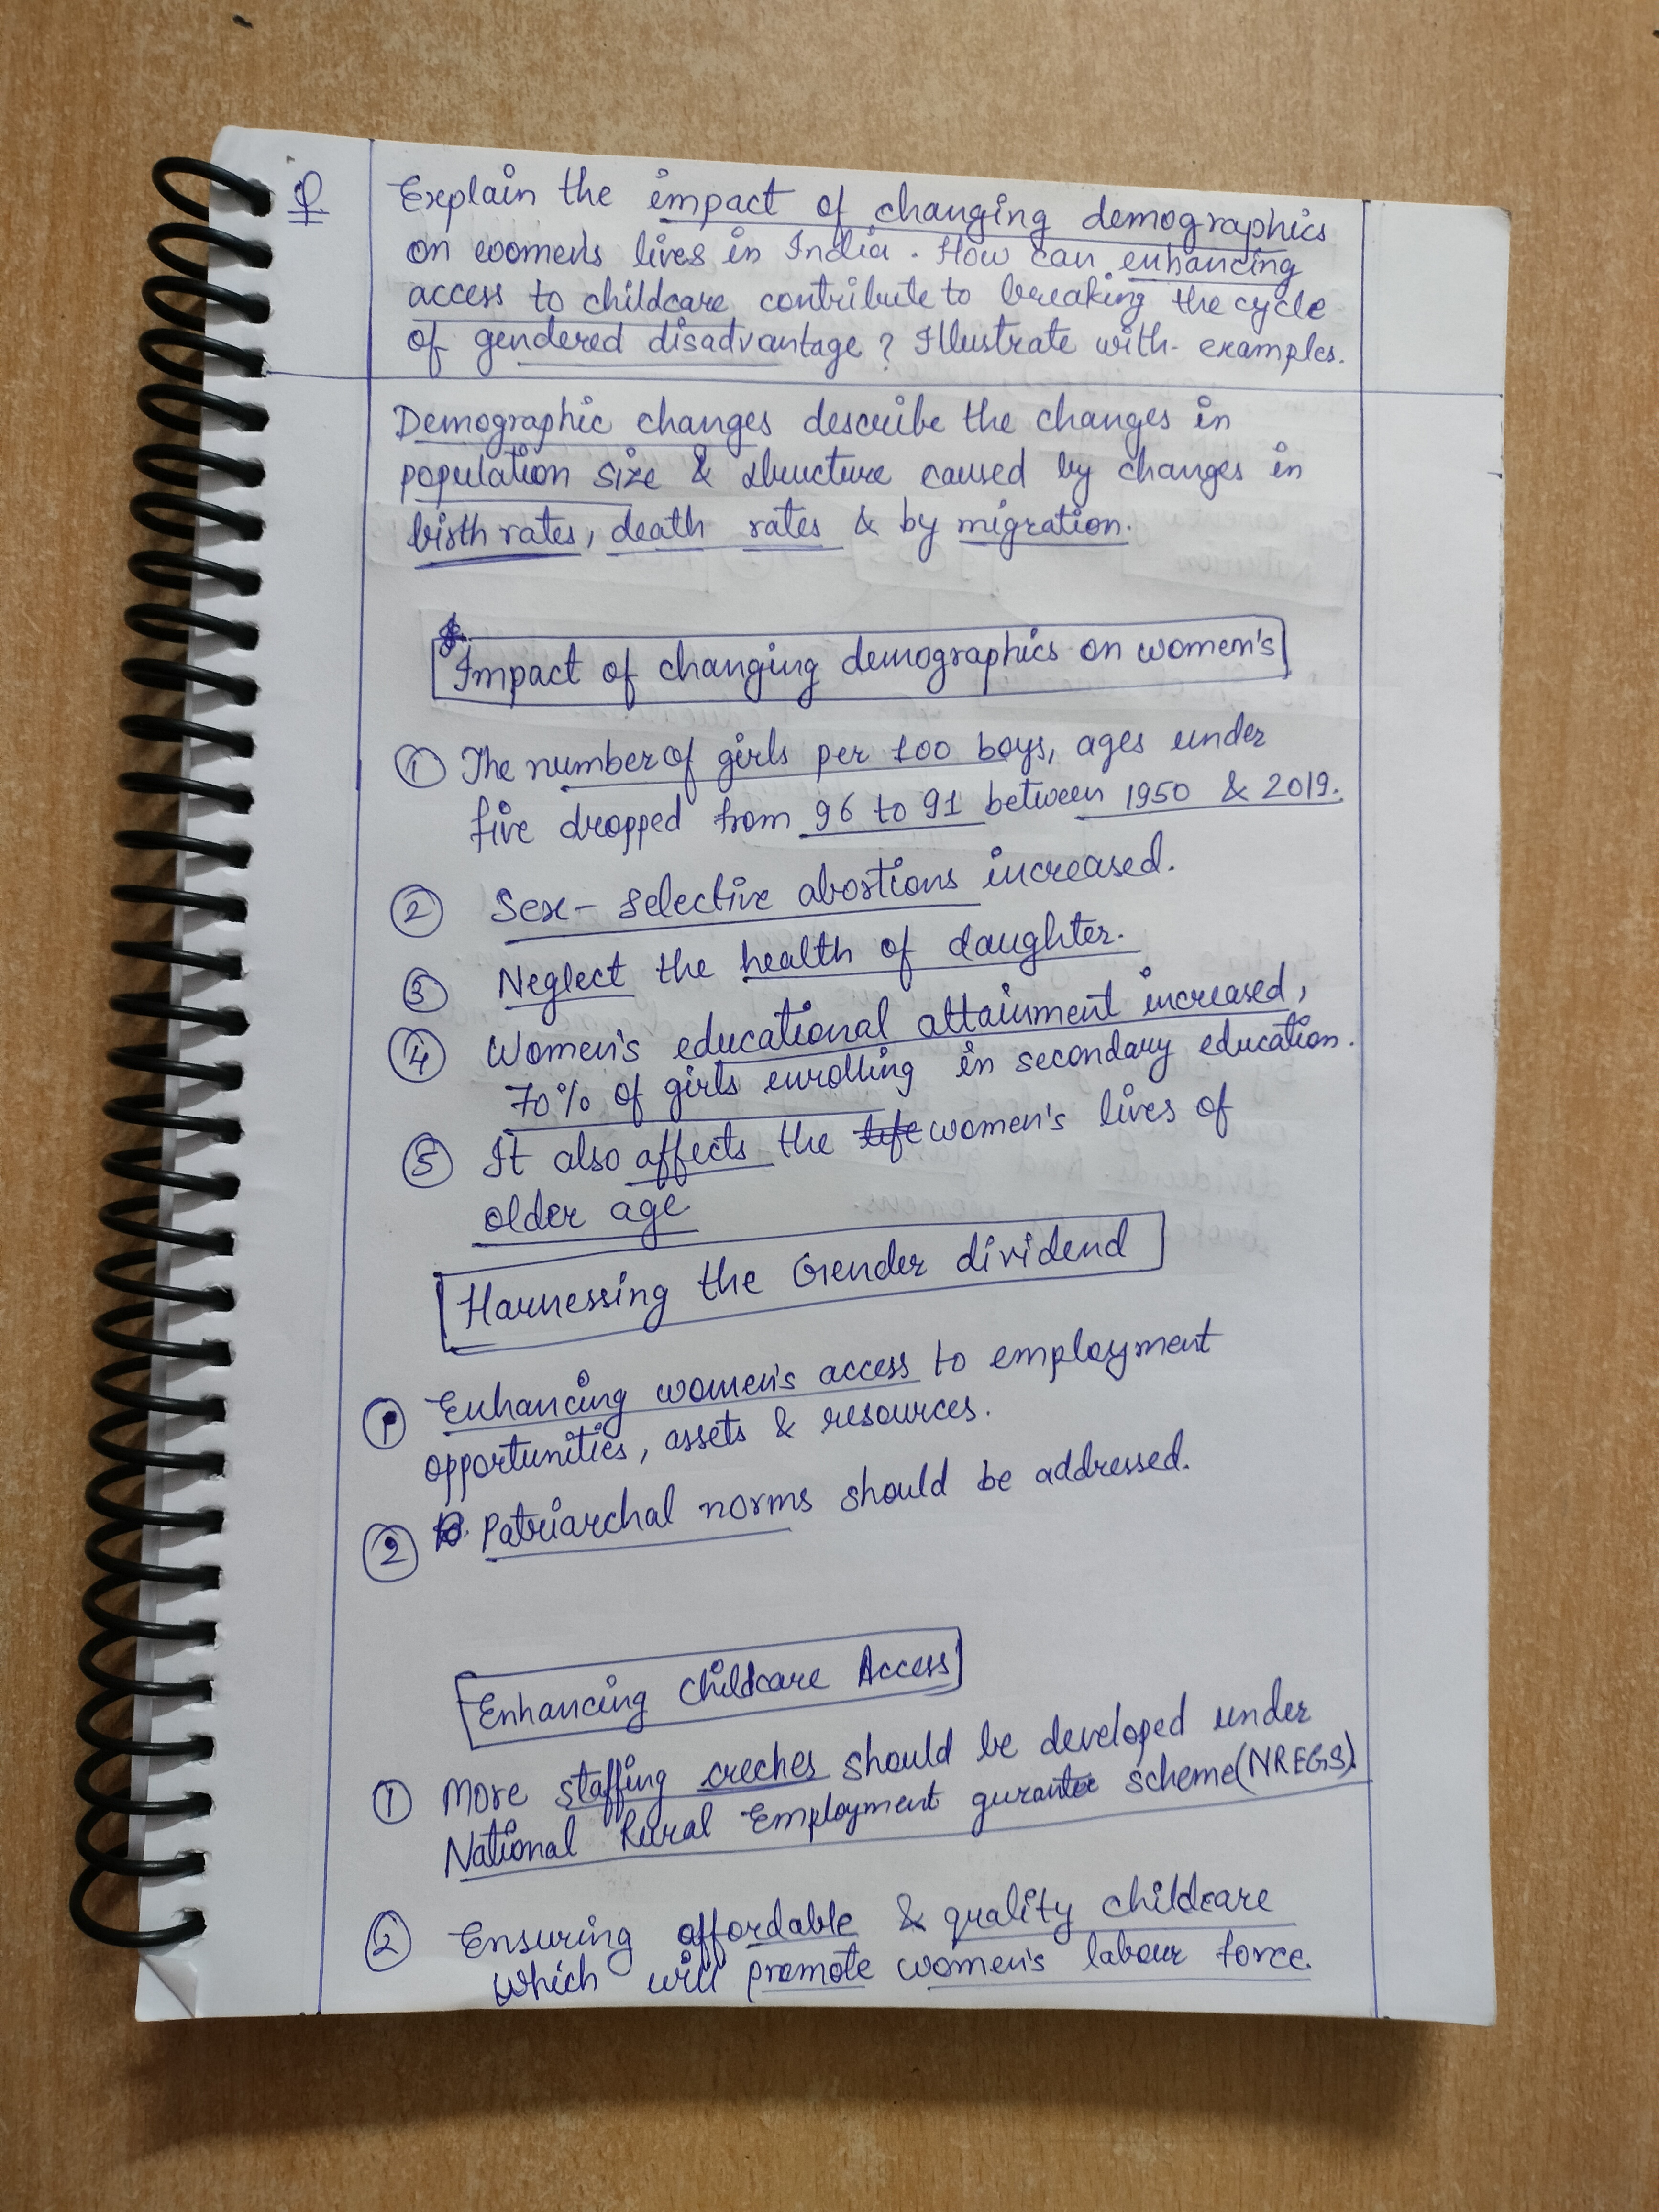 Q
Explain the impact of changing demographics
on women's lives in India. How can enhancing
access to childcare contribute to breaking the cycle
of gendered disadvantage? Illustrate with examples.
Demographic changes describe the changes in
population size & structure caused by changes in
birth rates, death rates & by migration.
Impact of changing demographics on women's
① The number of girls per 100 boys, ages under
five dropped from 96 to 91 between 1950 & 2019.
② Sex-selective abortions increased.
③ Neglect the health of daughter.
④ Women's educational attainment increased,
70% of girls enrolling in secondary education.
⑤ It also affects the life women's lives of
older age
Harnessing the Gender dividend
① Enhancing women's access to employment
opportunities, assets & resources.
② Patriarchal norms should be addressed.
Enhancing Childcare Access
① More staffing creches should be developed under
National Rural Employment gurantee scheme (NREGS).
② Ensuring affordable & quality childcare
which will promote women's labour force.